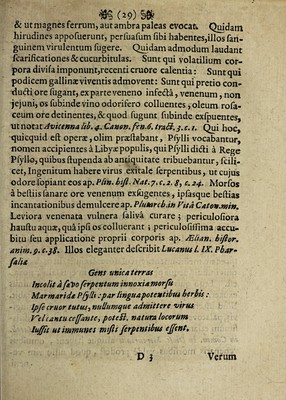 (29)
& ut magnes ferrum, aut ambra paleas evocat. Quidam
hirudines apposuerunt, persuasum sibi habentes, illos san-
guinem virulentum sugere. Quidam admodum laudant
scarificationes & cucurbitulas. Sunt qui volatilium cor-
pora divisa imponunt, recenti cruore calentia: Sunt qui
podicem gallinæ viventis admovent: Sunt qui pretio con-
ducti ore sugant, ex parte veneno infectâ, venenum, non
jejuni, os subinde vino odorifero colluentes, oleum rosa-
ceum ore detinentes, & quod sugunt subinde exspuentes,
ut notat Avicenna lib. 4. Canon. fen. 6. tract. 3. c. 1. Qui hoc,
quicquid est operæ, olim præstabant, Psylli vocabantur,
nomen accipientes à Libyæ populis, qui Psylli dicti à Rege
Psyllo, quibus stupenda ab antiquitate tribuebantur, scili-
cet, Ingenitum habere virus exitale serpentibus, ut cujus
odore sopiant eos ap. Plin. hist. Nat. 7. c. 2. 8, c. 24. Morsos
à bestiis sanare ore venenum exsugentes, ipsasque bestias
incantationibus demulcere ap. Plutarch. in Vitâ Caton. min.
Leviora venenata vulnera salivâ curare; periculosiora
haustu aquæ, quâ ipsi os colluerant; periculosissima accu-
bitu seu applicatione proprii corporis ap. Ælian. histor.
anim. 9. c. 38. Illos eleganter describit Lucanus l. IX. Phar-
saliæ
Gens unica terras
Incolit à sævo serpentum innoxia morsu
Marmaridæ Psylli: par lingua potentibus herbis:
Ipse cruor tutus, nullumque admittere virus
Vel cantu cessante, potest. natura locorum
Jussit ut immunes misti serpentibus essent.
D 3 Verum